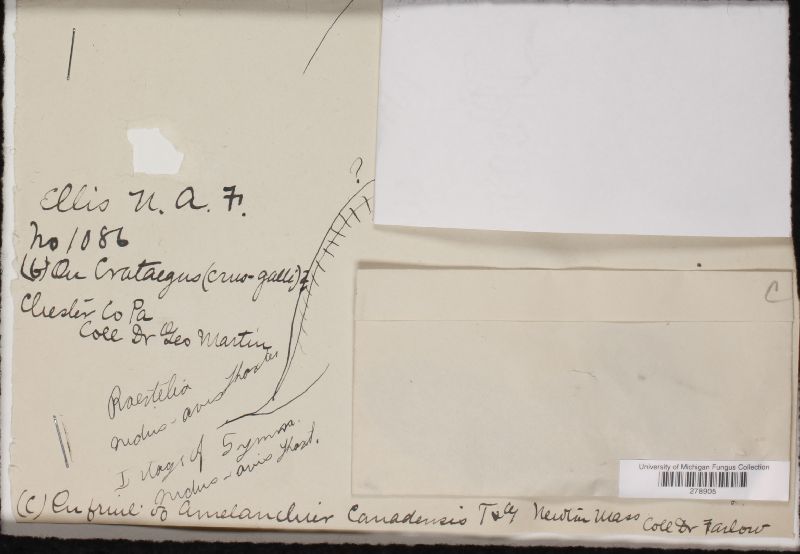 ?
Ellis N. A. F.
No 1086
(b) On Crataegus (crus-galli)
Chester Co Pa
Coll Dr Geo Martin
C
Roestelia
nidus-avis Thaxter
I stage of Gymno.
nidus-avis Thaxt.
University of Michigan Fungus Collection
278905
(C) On fruit of Amelanchier Canadensis T & G Newton Mass Coll Dr Farlow